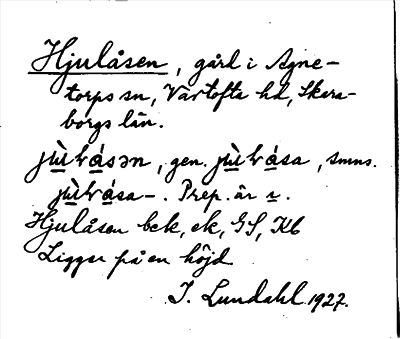 Hjulåsen, gård i Agne-
torps sn, Vartofta hd, Skara-
borgs län.
jùlásən, gen. jùlása, smns.
jùlása-. Prep. är
Hjulåsen bek, ek, GS, Kb
Ligger på en höjd
I. Lundahl 1927.